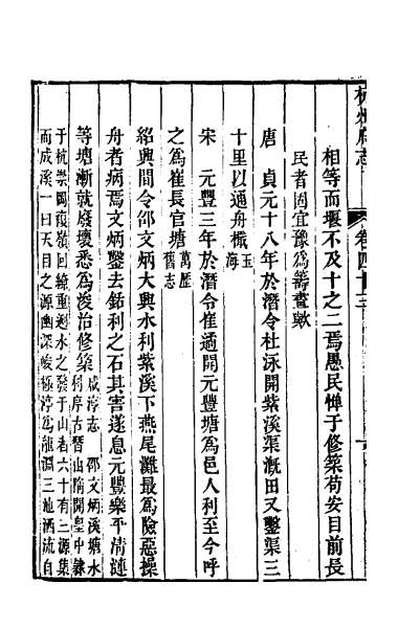 杭州府志
卷四十三
相等而堰不及十之二焉愚民憚于修築苟安目前長
民者固宜豫爲籌畫歟
唐　貞元十八年於潛令杜泳開紫溪渠漑田又鑿渠三
十里以通舟檝玉海
宋　元豐三年於潛令崔適開元豐塘爲邑人利至今呼
之爲崔長官塘萬歷舊志
紹興間令邵文炳大興水利紫溪下燕尾灘最爲險惡操
舟者病焉文炳鑿去銛利之石其害遂息元豐樂平清漣
等塘漸就廢壞悉爲浚治修築咸淳志　邵文炳溪塘水
利序古晉山隋開皇中隸
于杭崇岡複嶺回繞重㴱水之發于山者六十有二源集
而成溪一曰天目之源幽深峻極渟爲龍淵三地洒流自